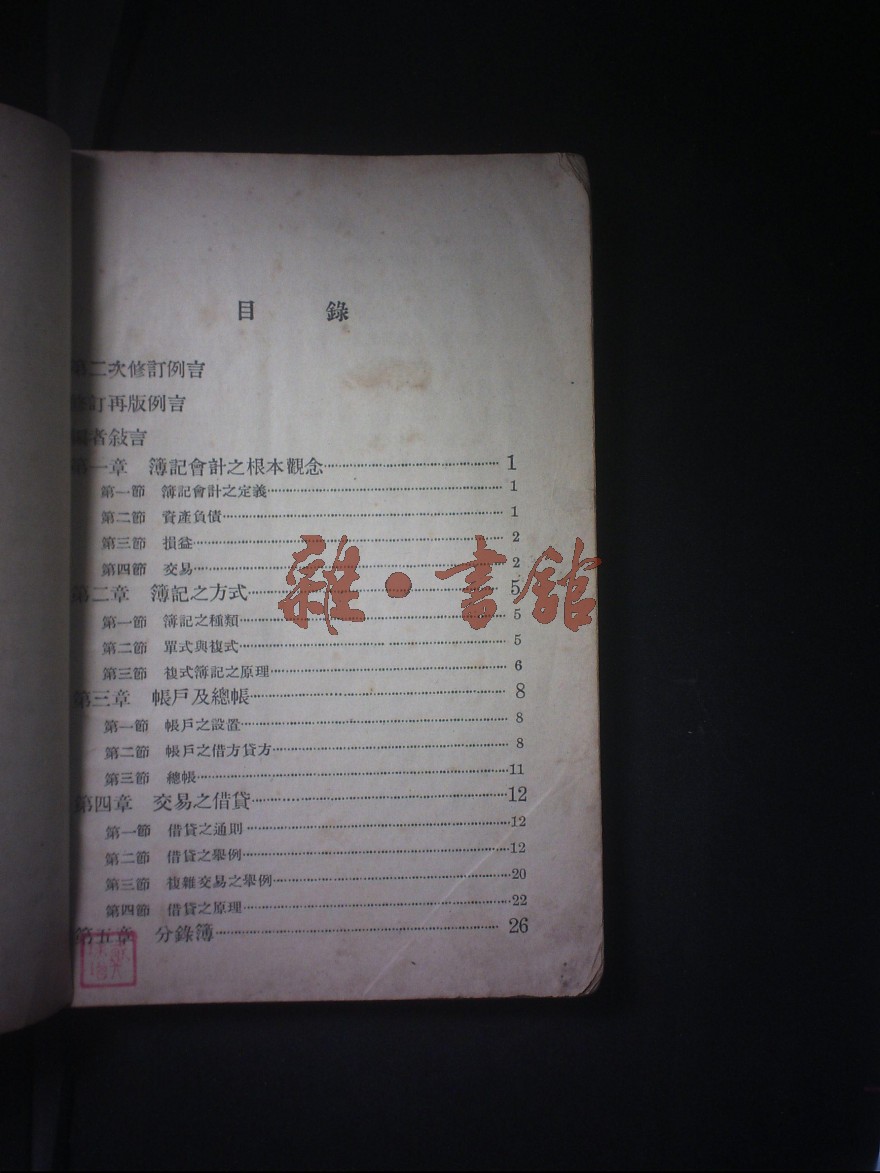 目錄
第二次修訂例言
修訂再版例言
編者敍言
第一章 簿記會計之根本觀念 1
第一節 簿記會計之定義 1
第二節 資產負債 1
第三節 損益 2
第四節 交易 2
第二章 簿記之方式 5
第一節 簿記之種類 5
第二節 單式與複式 5
第三節 複式簿記之原理 6
第三章 帳戶及總帳 8
第一節 帳戶之設置 8
第二節 帳戶之借方貸方 8
第三節 總帳 11
第四章 交易之借貸 12
第一節 借貸之通則 12
第二節 借貸之舉例 12
第三節 複雜交易之舉例 20
第四節 借貸之原理 22
第五章 分錄簿 26
雜·書館